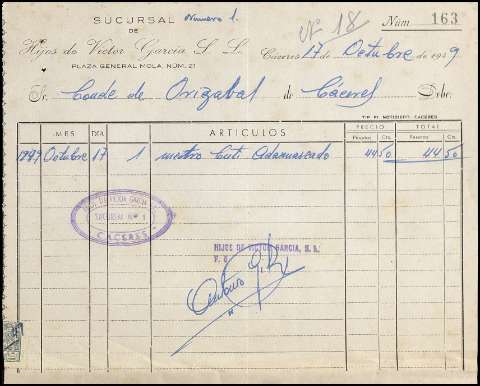 SUCURSAL Número 1.
DE
Hijos de Victor García S. L.
PLAZA GENERAL MOLA, NÚM. 21
Nº 18
Núm. 163
Cáceres 17 de Octubre de 1949
Sr. Conde de Orizabal de Cáceres Debe:
TIP. EL NOTICIERO. CÁCERES
MES DIA ARTICULOS PRECIO TOTAL
Pesetas Cts. Pesetas Cts.
1949 Octubre 17 1 metro Cuti Adamascado 44 50 44 50
HIJOS DE VICTOR GARCIA
SUCURSAL Nº 1
CACERES
HIJOS DE VICTOR GARCIA, S. L.
P. O.